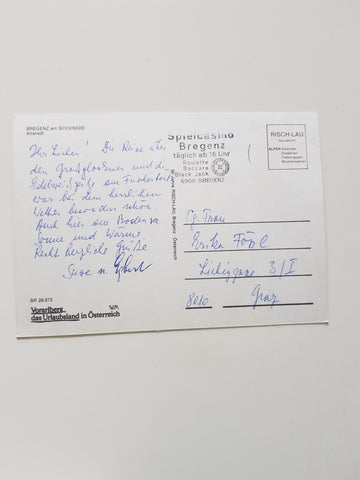 BREGENZ am BODENSEE
Altstadt
Ihr Lieben! Die Reise über
den Großglockner und die
Edelweißspitze am
war bei dem herrlichen
Wetter besonders schön.
Auch hier am Bodensee
Sonne und Wärme.
Recht herzliche Grüße
BR 25.872
Vorarlberg,
das Urlaubsland in Österreich
© Janne RISCH-LAU, Bregenz Österreich
Spielcasino
Bregenz
täglich ab 16 Uhr
Roulette
Baccara
Black Jack
6900 BREGENZ
RISCH-LAU
ALPEN-Kalender
Frau
Erika
3/I
8010 Graz